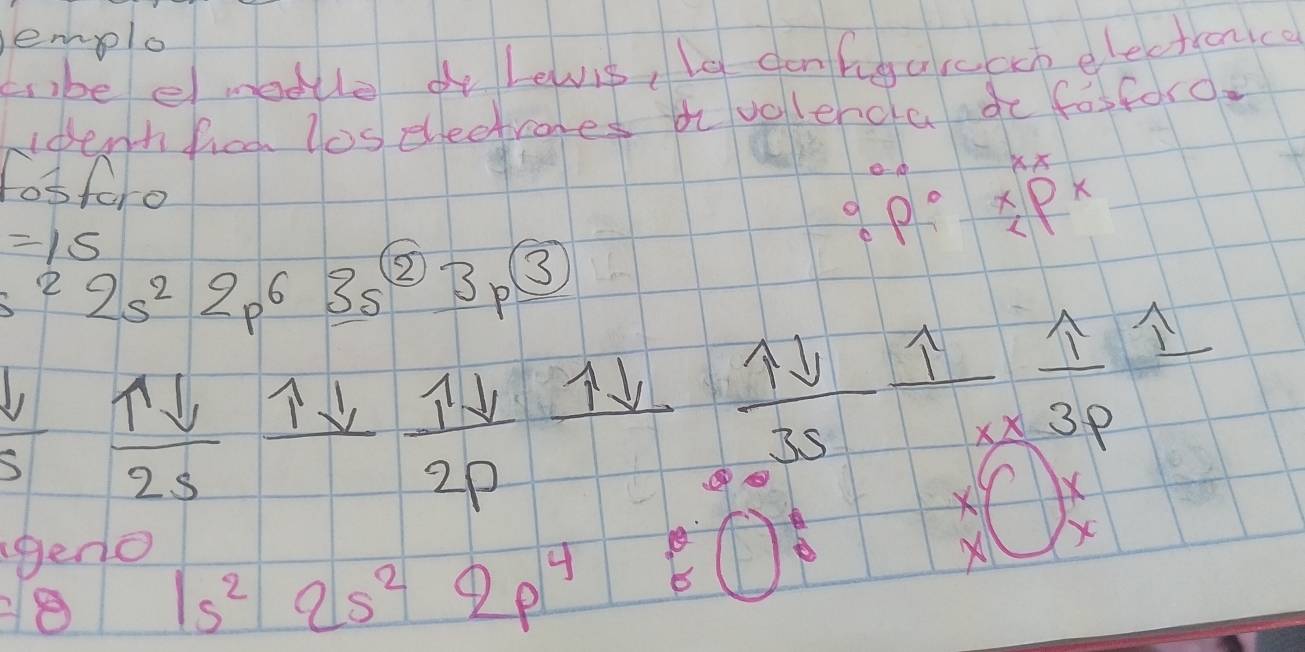 emplo
cribe el modelo de Lewis, la configuración electronica
identifica los electrones de valencia de fósforo.
Fósforo
=15
s² 2s² 2p⁶ 3s② 3p③
P P
↓ ↑↓ ↑↓ ↑↓ ↑↓ ↑↓ ↑ ↑ ↑
s 2s 2p 3s 3p
geno
=8 1s² 2s² 2p⁴ O O